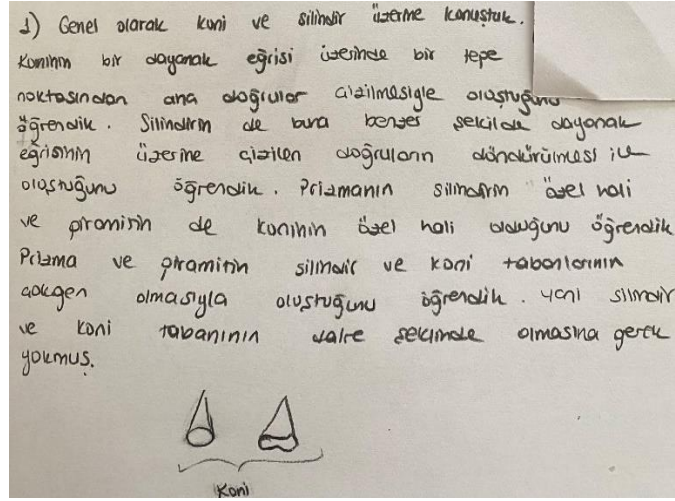 1) Genel olarak koni ve silindir üzerine konuştuk.
Koninin bir dayanak eğrisi üzerinde bir tepe
noktasından ana doğrular çizilmesiyle oluştuğunu
öğrendik. Silindirin de buna benzer şekilde dayanak
eğrisinin üzerine çizilen doğruların döndürülmesi ile
oluştuğunu öğrendik. Prizmanın silindirin özel hali
ve piramitin de koninin özel hali olduğunu öğrendik
Prizma ve piramitin silindir ve koni tabanlarının
çokgen olmasıyla oluştuğunu öğrendik. yani silindir
ve koni tabanının daire şeklinde olmasına gerek
yokmuş.
Koni